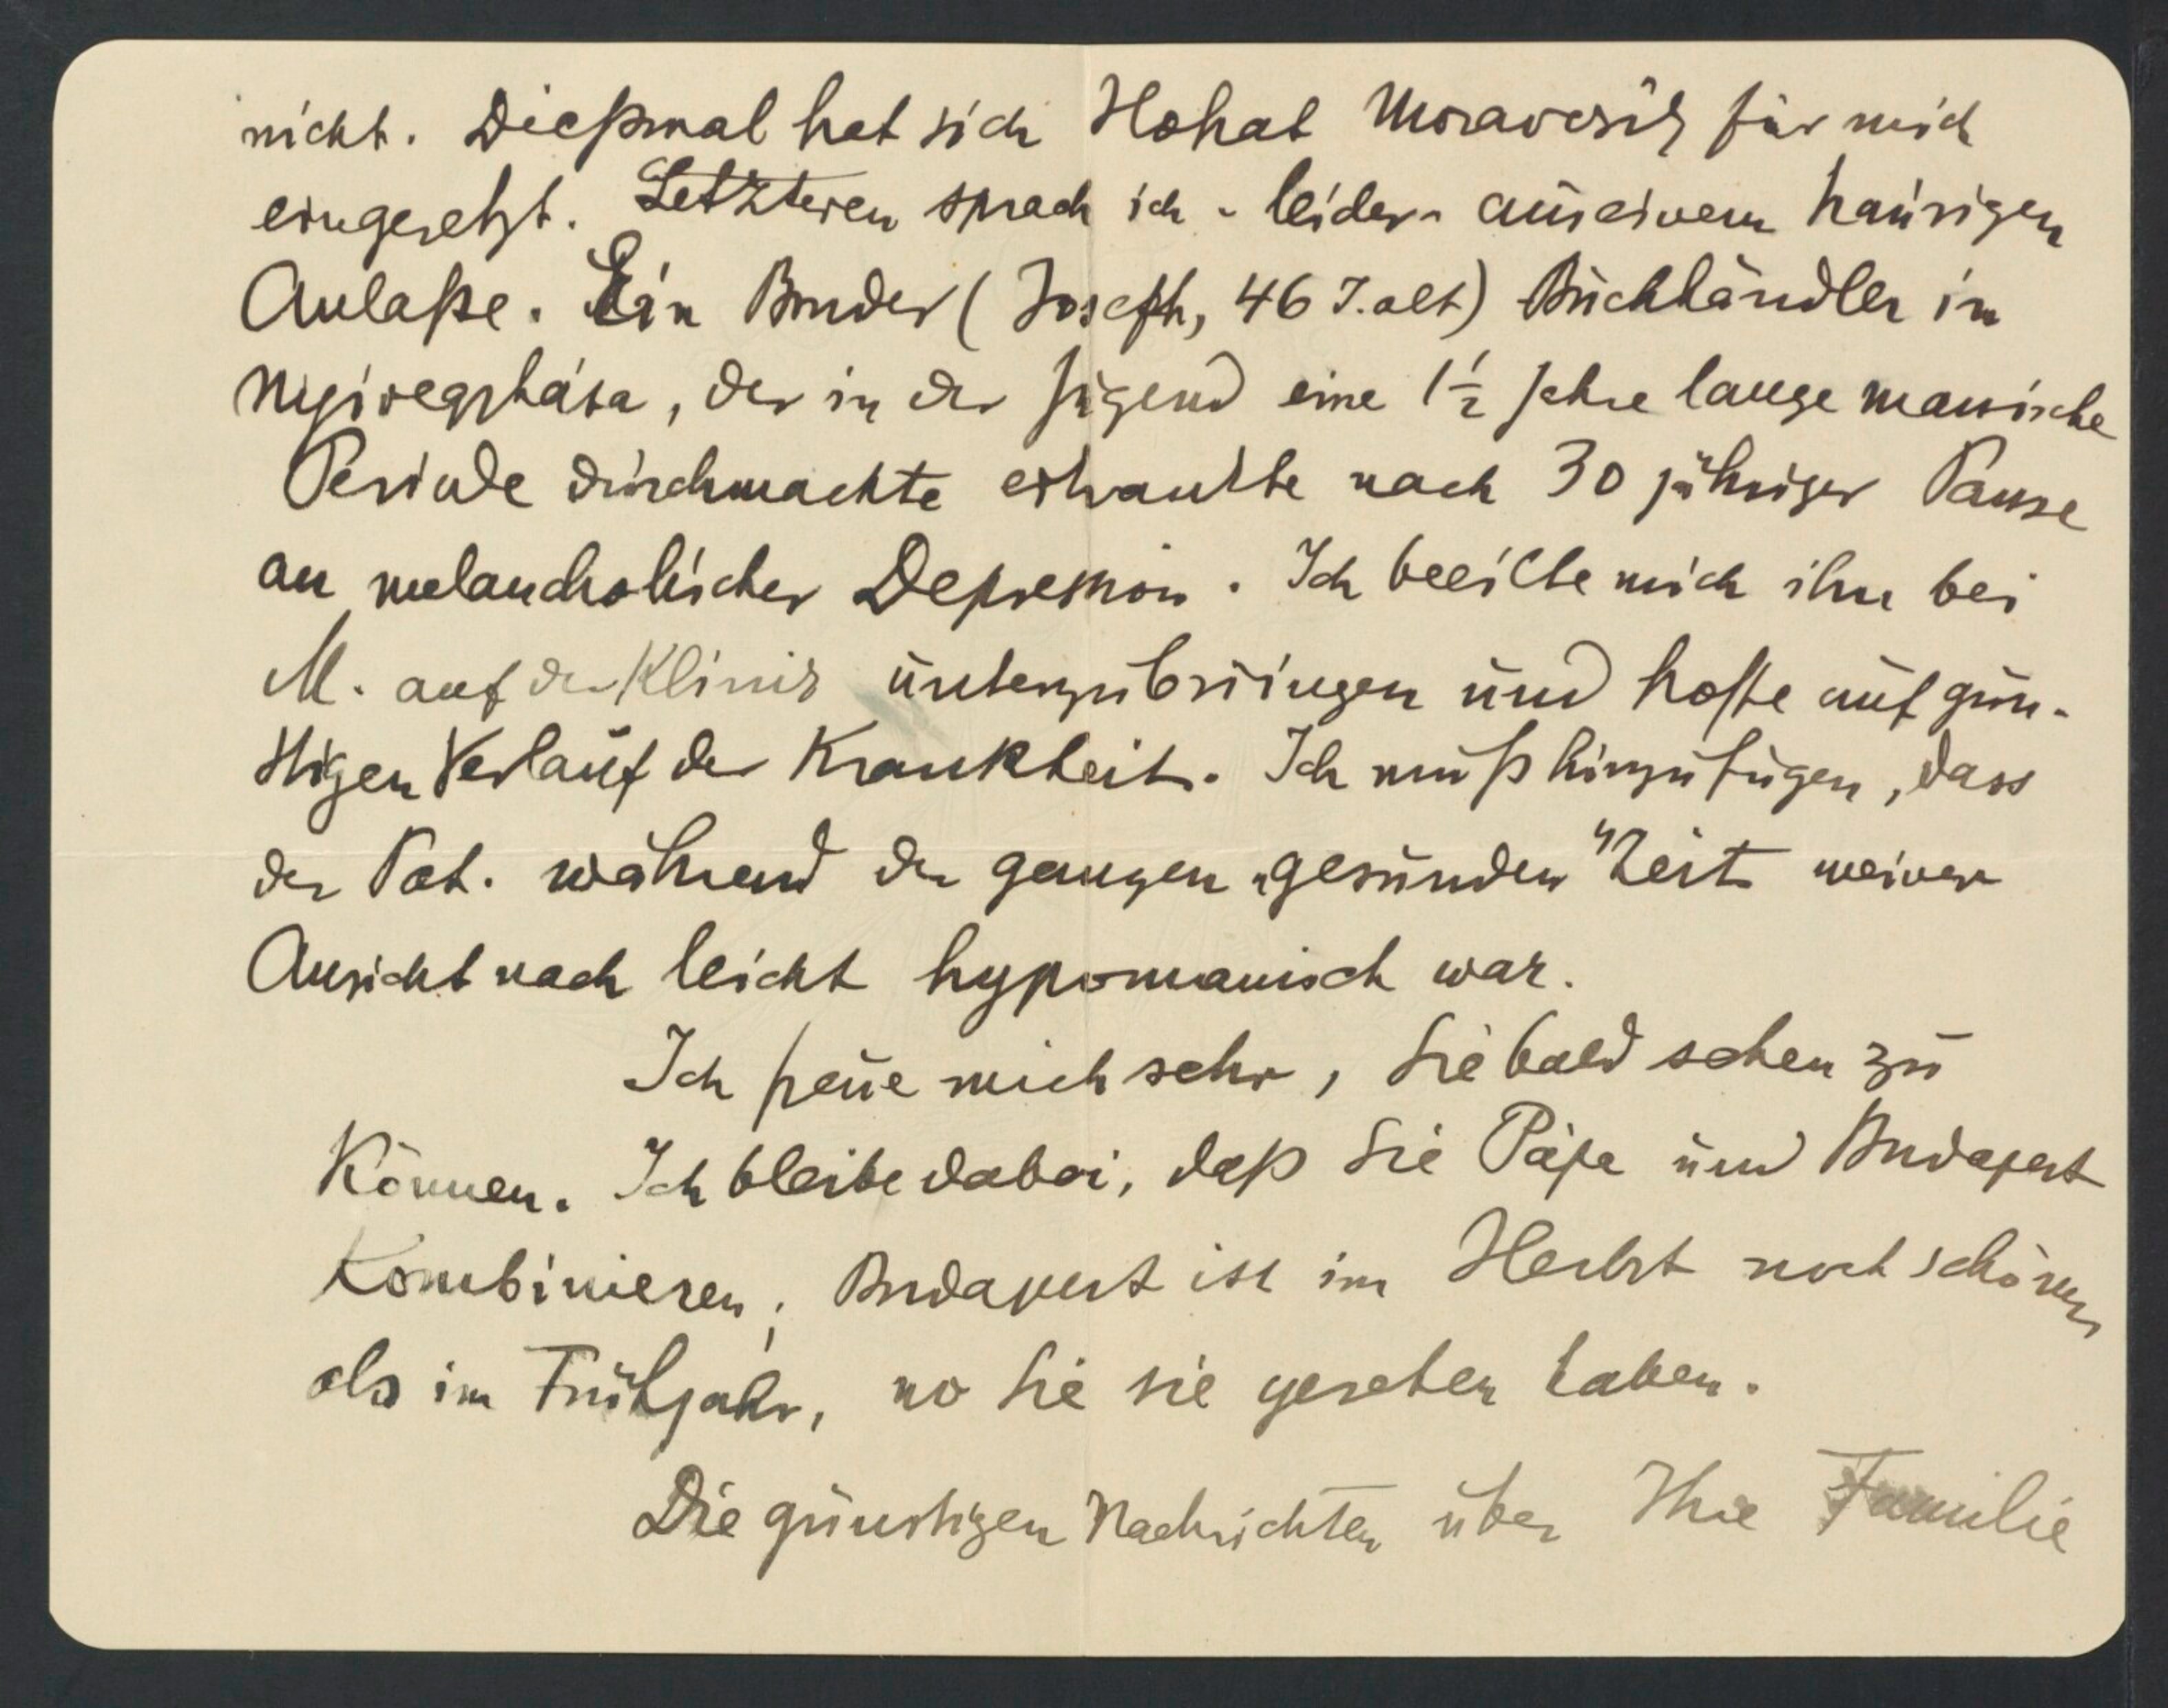 nicht. Dießmal hat sich Hofrat Moravcsik für mich
eingesetzt. Letzteren sprach ich - leider - aus einem traurigen
Anlaße. Ein Bruder (Joseph, 46 J. alt) Buchhändler in
Nyiregyháza, der in der Jugend eine 1½ Jahre lange manische
Periode durchmachte erkrankte nach 30 jähriger Pause
an melancholischer Depression. Ich beeilte mich ihn bei
M. auf der Klinik unterzubringen und hoffe auf gün-
stigen Verlauf der Krankheit. Ich muß hinzufügen, dass
der Pat. während der ganzen „gesunden" Zeit meiner
Ansicht nach leicht hypomanisch war.
Ich freue mich sehr, Sie bald sehen zu
können. Ich bleibe dabei, daß Sie Pápa und Budapest
kombinieren; Budapest ist im Herbst noch schöner
als im Frühjahr, wo Sie sie gesehen haben.
Die günstigen Nachrichten über Ihre Familie